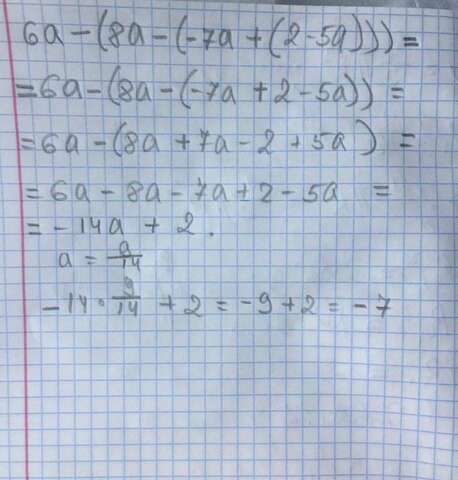 6a-(8a-(-7a+(2-5a)))=
=6a-(8a-(-7a+2-5a))=
=6a-(8a+7a-2+5a)=
=6a-8a-7a+2-5a=
=-14a+2.
a=9/14
-14·9/14+2=-9+2=-7